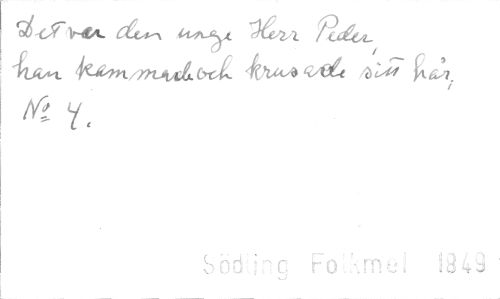 Det var den unge Herr Peder,
han kammade och krusade sitt hår;
No 4.
Södling Folkmel 1849